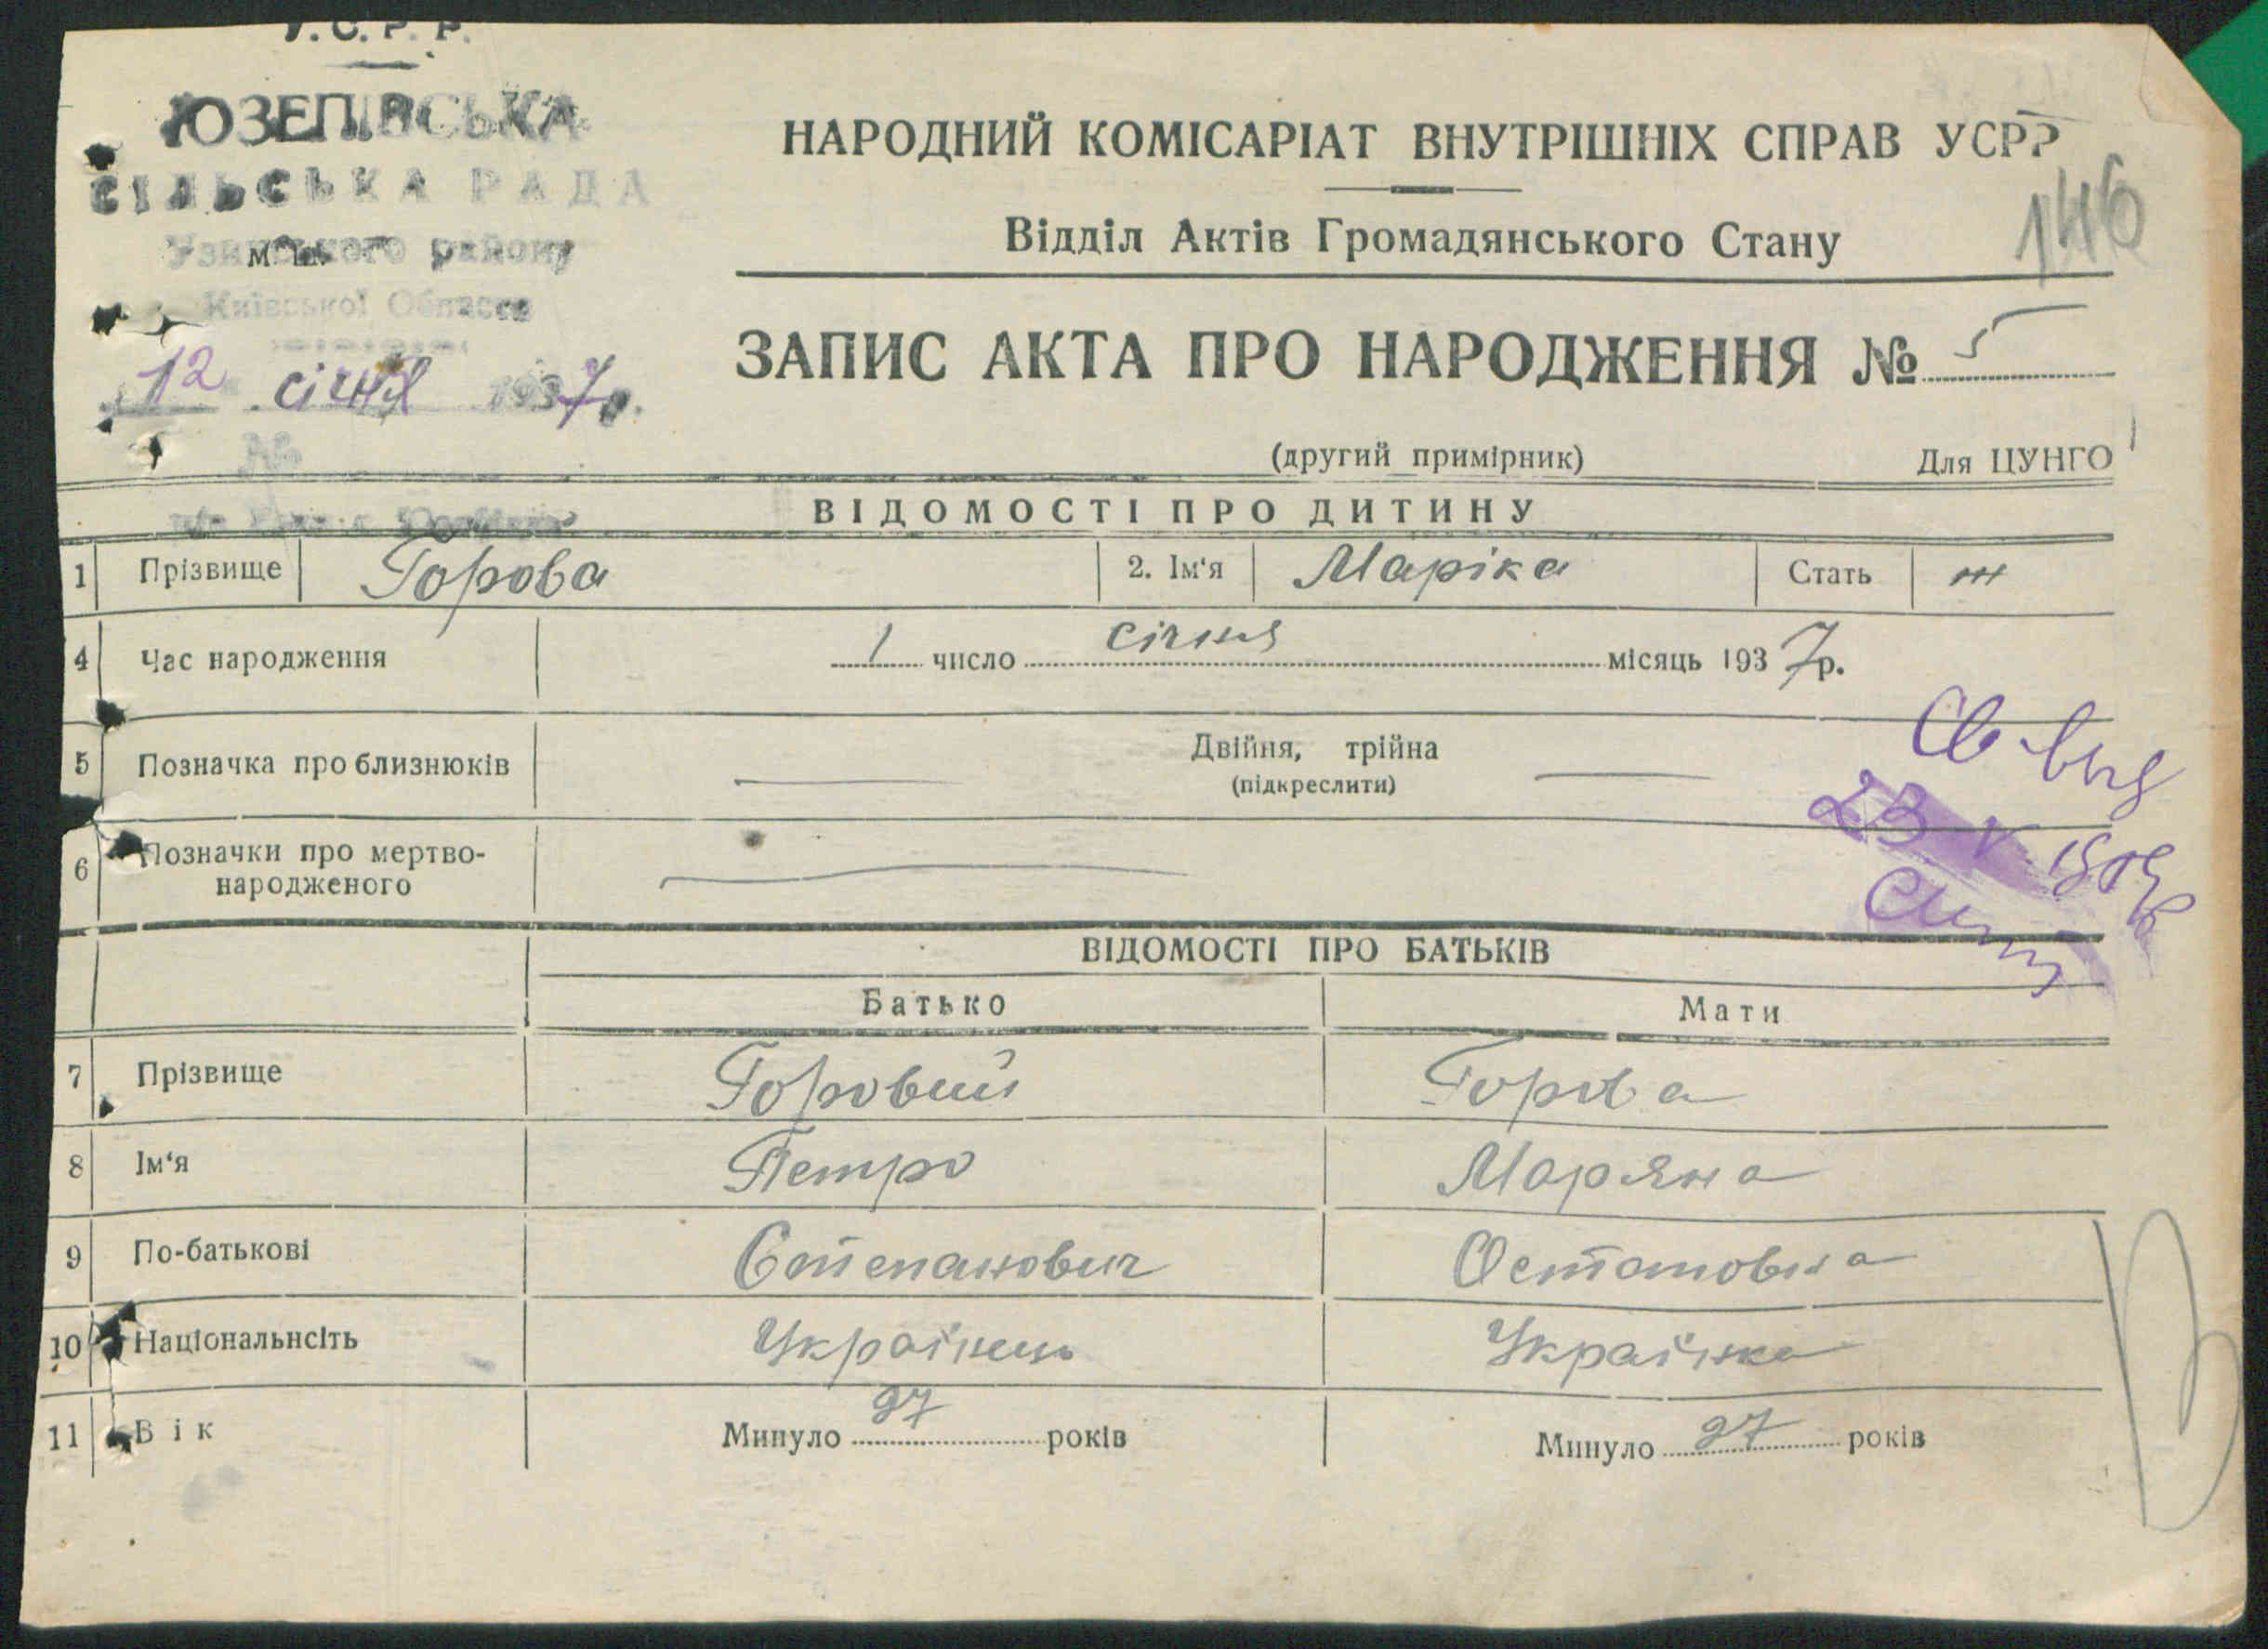 У.С.Р.Р.
ЮЗЕПІВСЬКА
СІЛЬСЬКА РАДА
Узинського району
Київської Області
12 січня 1937 р.
№
НАРОДНИЙ КОМІСАРІАТ ВНУТРІШНІХ СПРАВ УСРР
146
Відділ Актів Громадянського Стану
ЗАПИС АКТА ПРО НАРОДЖЕННЯ № 5
(другий примірник) Для ЦУНГО
ВІДОМОСТІ ПРО ДИТИНУ
1 Прізвище Горова 2. Ім'я Маріка Стать ж
4 Час народження 1 число січня місяць 1937 р.
5 Позначка про близнюків Двійня, трійна
(підкреслити)
Св. выд
23 V
6 Позначки про мертво-
народженого
ВІДОМОСТІ ПРО БАТЬКІВ
Батько Мати
7 Прізвище Горовий Горова
8 Ім'я Петро Маряна
9 По-батькові Степанович Остаповна
10 Національнсіть Українець Українка
11 Вік Минуло 27 років Минуло 27 років